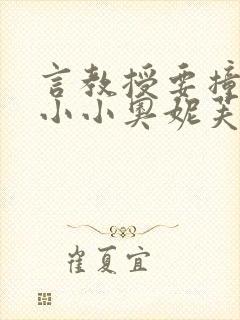 言教授要撞
小小奥妮芙
崔夏宜